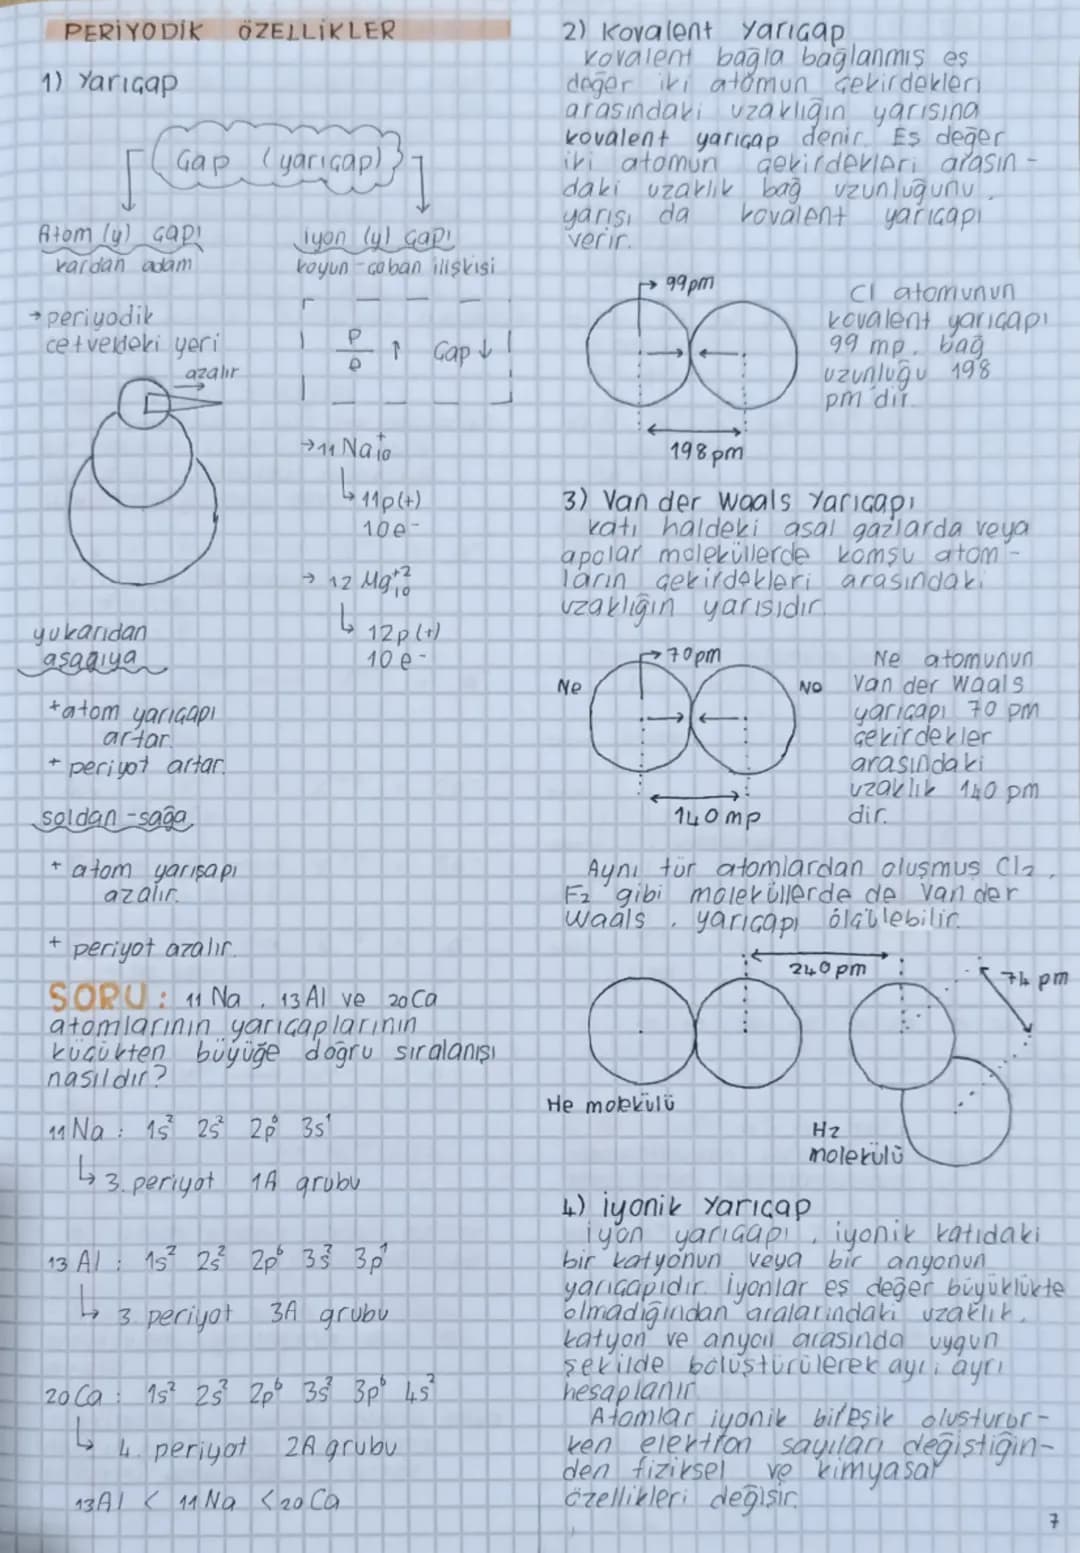 PERİYODİK ÖZELLİKLER
1) Yarıçap
Çap (yarıçap)
Atom (y) çapı
kardan adam
→ periyodik
cetveldeki yeri
azalır
yukarıdan
aşağıya
+ atom yarıçapı
artar.
+ periyot artar.
soldan - sağa
+ atom yarışapı
azalır.
+ periyot azalır.
iyon (y) çapı
koyun - çoban ilişkisi
p/e ↑ Çap ↓
→ 11 Na+ 10
↳ 11p(+)
10e-
→ 12 Mg+2 10
↳ 12p(+)
10e-
SORU : 11Na , 13Al ve 20Ca
atomlarının yarıçaplarının
küçükten büyüğe doğru sıralanışı
nasıldır?
11Na : 1s² 2s² 2p⁶ 3s¹
↳ 3. periyot 1A grubu
13Al : 1s² 2s² 2p⁶ 3s² 3p¹
↳ 3. periyot 3A grubu
20Ca : 1s² 2s² 2p⁶ 3s² 3p⁶ 4s²
↳ 4. periyot 2A grubu
13Al < 11Na < 20Ca
2) Kovalent Yarıçap
Kovalent bağla bağlanmış eş
değer iki atomun çekirdekleri
arasındaki uzaklığın yarısına
kovalent yarıçap denir. Eş değer
iki atomun çekirdekleri arasın-
daki uzaklık bağ uzunluğunu,
yarısı da kovalent yarıçapı
verir.
99pm
198pm
Cl atomunun
kovalent yarıçapı
99 mp, bağ
uzunluğu 198
pm'dir.
3) Van der Waals Yarıçapı
Katı haldeki asal gazlarda veya
apolar moleküllerde komşu atom-
ların çekirdekleri arasındaki
uzaklığın yarısıdır.
Ne
70pm
Ne
140mp
Ne atomunun
Van der Waals
yarıçapı 70 pm
çekirdekler
arasındaki
uzaklık 140 pm
dir.
Aynı tür atomlardan oluşmuş Cl₂,
F₂ gibi moleküllerde de Van der
Waals yarıçapı ölçülebilir.
240pm
74 pm
He molekülü
H2
molekülü
4) İyonik Yarıçap
İyon yarıçapı, iyonik katıdaki
bir katyonun veya bir anyonun
yarıçapıdır. İyonlar eş değer büyüklükte
olmadığından aralarındaki uzaklık,
katyon ve anyon arasında uygun
şekilde bölüştürülerek ayrı ayrı
hesaplanır.
Atomlar iyonik bileşik oluşturur-
ken elektron sayıları değiştiğin-
den fiziksel ve kimyasal
özellikleri değişir.
7